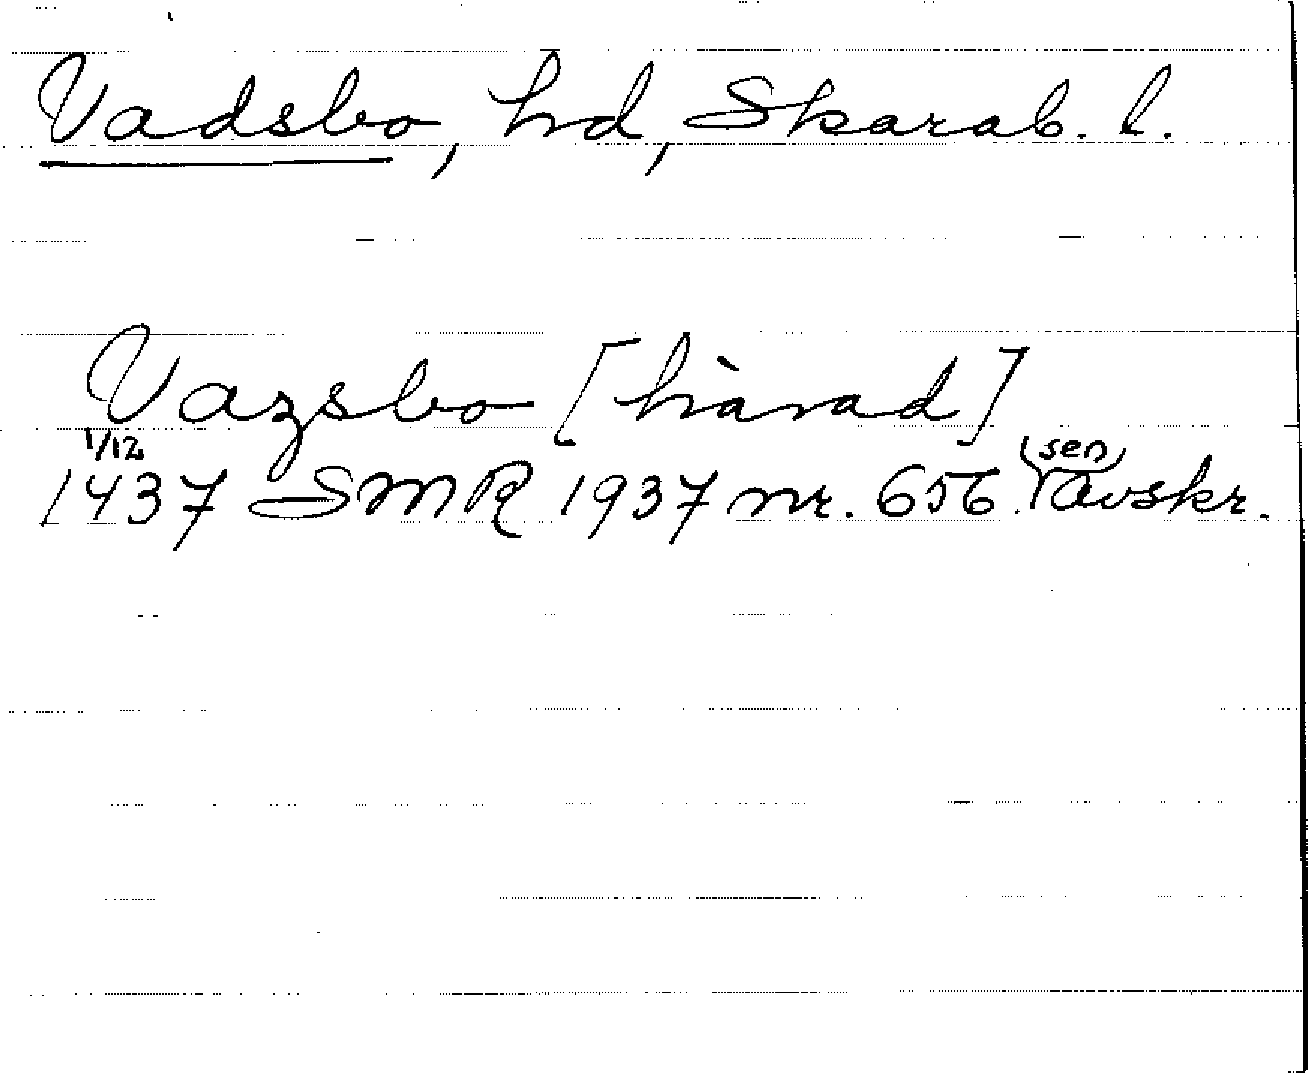 Vadsbo, hd, Skarab. l.
Vazsbo [hàrad]
1/12
1437 SMR 1937 nr. 656. (sen) Avskr.